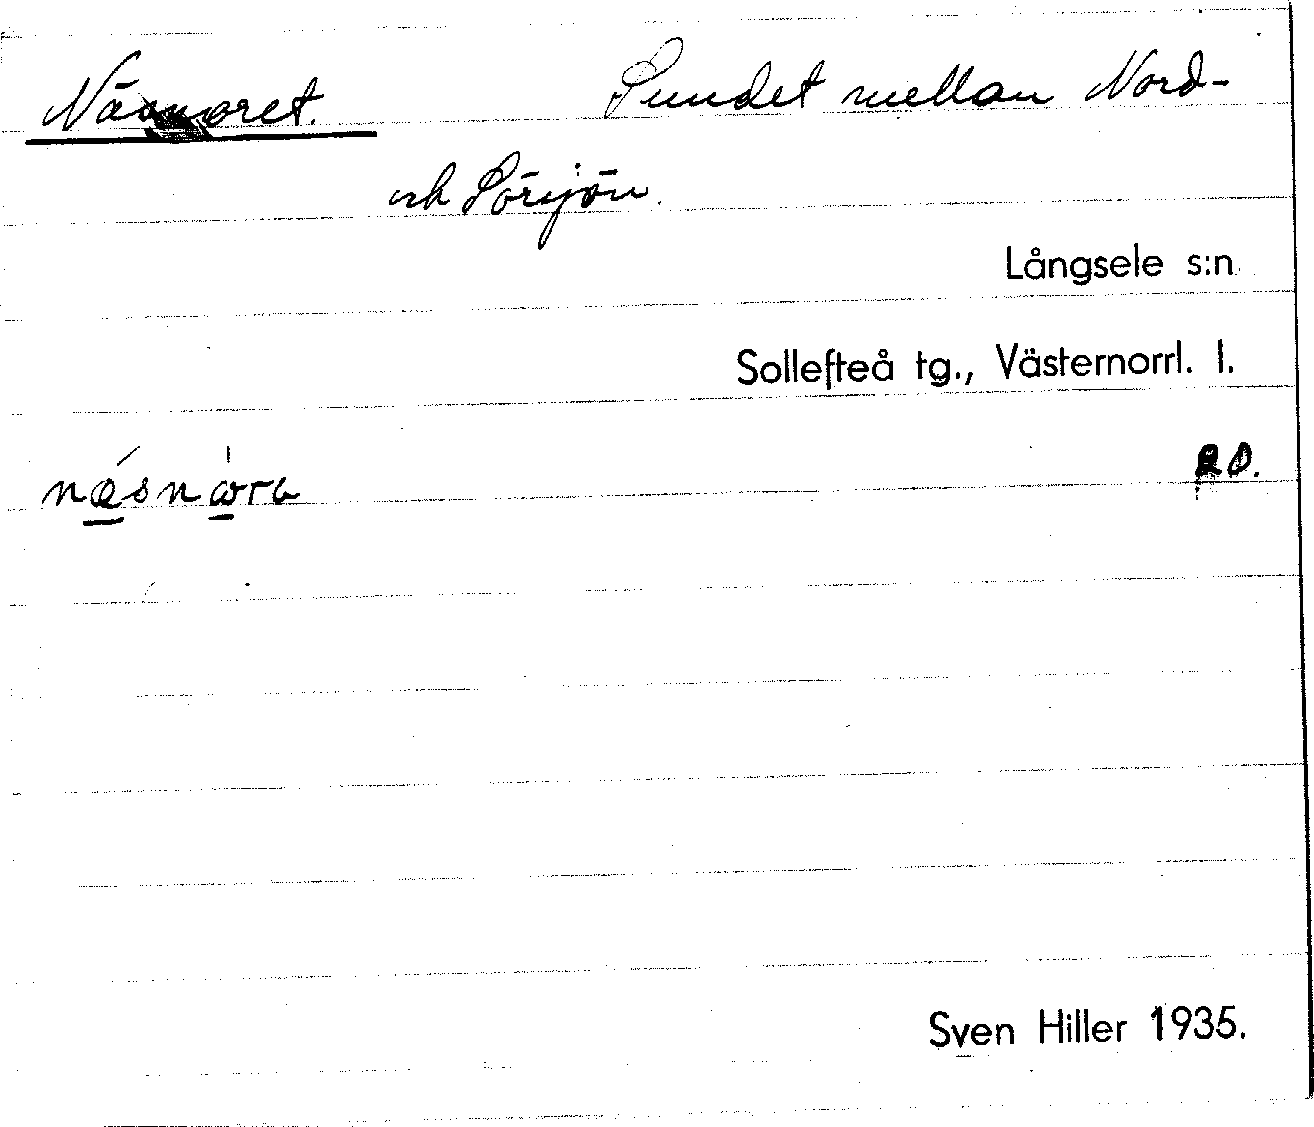 Näsnoret. Sundet mellan Nord-
och Sörsjön.
Långsele s:n
Sollefteå tg., Västernorrl. l.
R D.
Sven Hiller 1935.